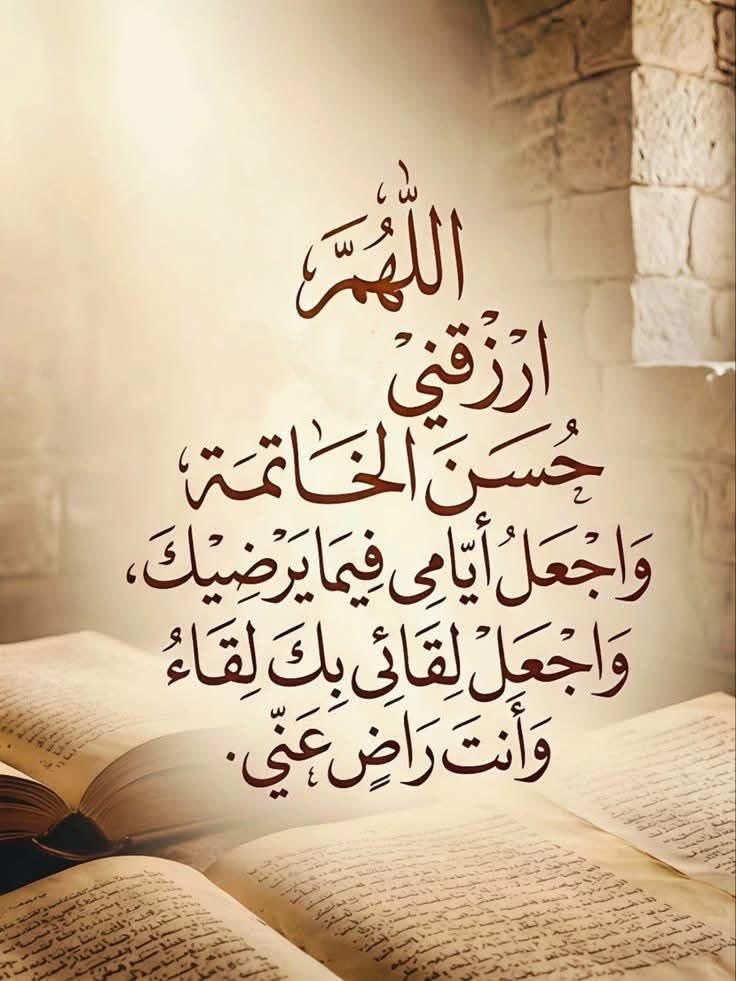 اللّٰهُمَّ
ارْزُقْنِيْ
حُسَنَ الخَاتمَة
وَاجْعَلُ أيّامِى فِيمَا يَرْضِيْكَ،
وَاجْعَلْ لِقَائِى بِكَ لِقَاءُ
وَأَنتَ رَاضٍ عَنّي.